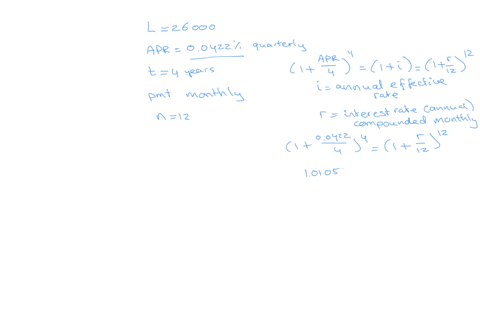 L = 26000
APR = 0.0422% quarterly
t = 4 years
pmt monthly
n = 12
(1 + APR/4)^4 = (1 + i) = (1 + r/12)^12
i = annual effective
rate
r = interest rate (annual)
compounded monthly
(1 + 0.0422/4)^4 = (1 + r/12)^12
1.0105